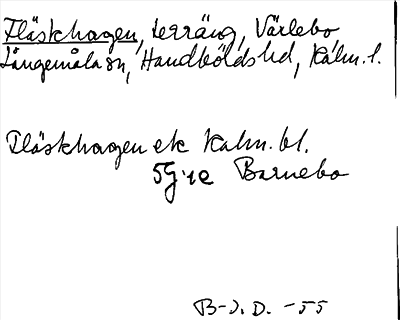 Fläskhagen, terräng, Värlebo
Långemåla sn, Handbölds hd, Kalm. l.
Fläskhagen ek Kalm. bl.
5G:1e Barnebo
B-J.D. -55